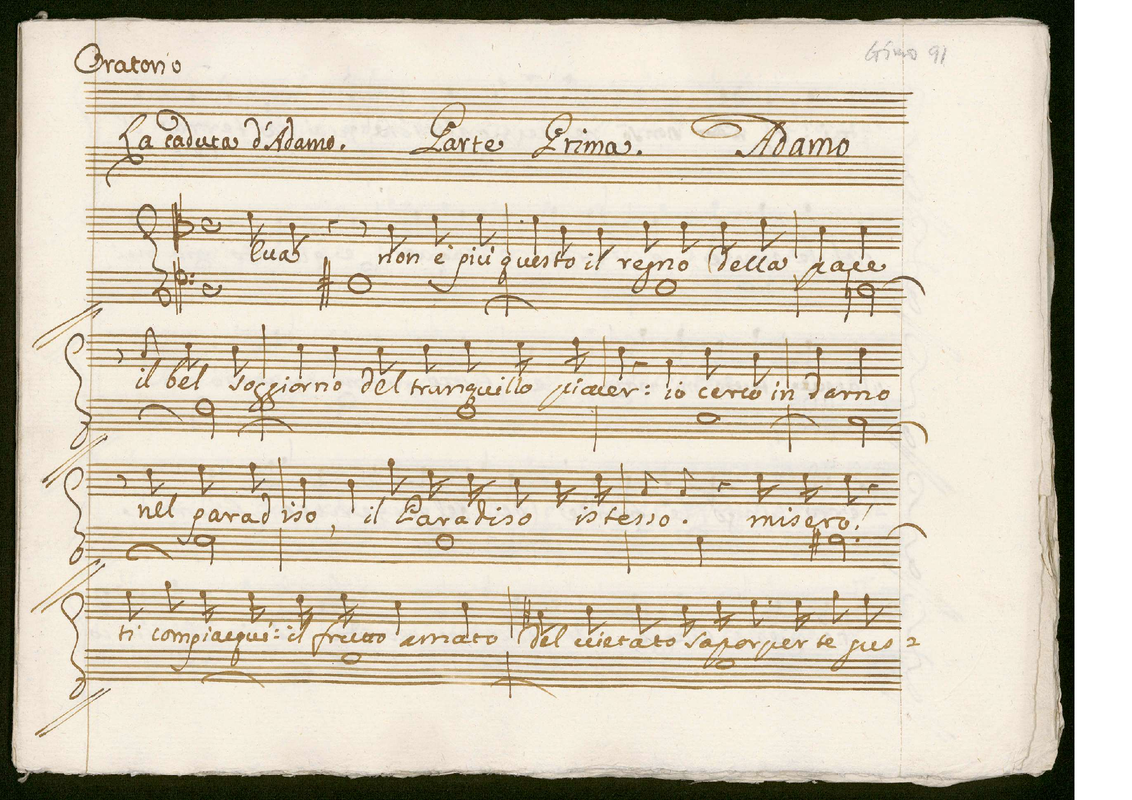 Oratorio
Gimo 91
La caduta d'Adamo. Parte Prima. Adamo
Eva non è più questo il regno della pace
il bel soggiorno del tranquillo piacer: io cerco in darno
nel paradiso, il Paradiso istesso. misero!
ti compiacqui: il frutto amato del vietato sapor per te gus=